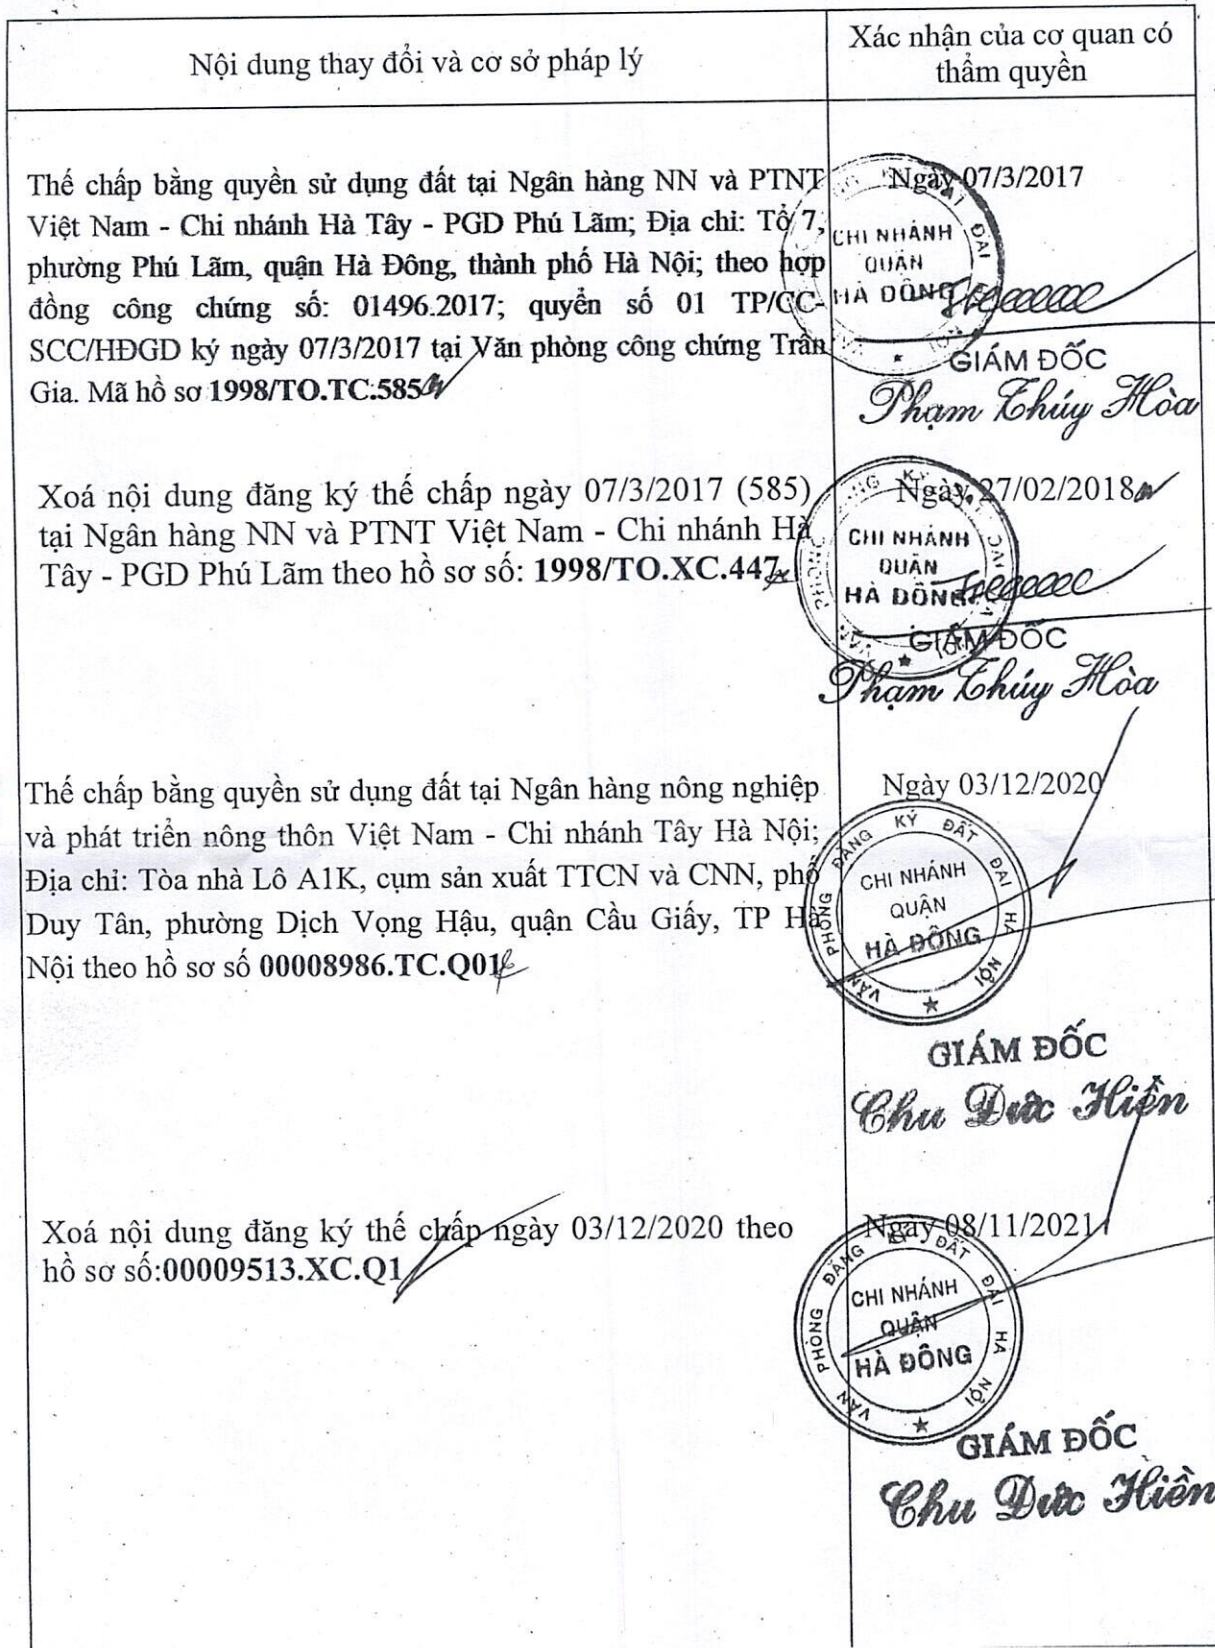 Nội dung thay đổi và cơ sở pháp lý
Xác nhận của cơ quan có
thẩm quyền
Thế chấp bằng quyền sử dụng đất tại Ngân hàng NN và PTNT
Việt Nam - Chi nhánh Hà Tây - PGD Phú Lãm; Địa chỉ: Tổ 7,
phường Phú Lãm, quận Hà Đông, thành phố Hà Nội; theo hợp
đồng công chứng số: 01496.2017; quyển số 01 TP/CC-
SCC/HĐGD ký ngày 07/3/2017 tại Văn phòng công chứng Trần
Gia. Mã hồ sơ 1998/TO.TC.585
Ngày 07/3/2017
CHI NHÁNH
QUẬN
HÀ ĐÔNG
GIÁM ĐỐC
Phạm Thúy Hòa
Xoá nội dung đăng ký thế chấp ngày 07/3/2017 (585)
tại Ngân hàng NN và PTNT Việt Nam - Chi nhánh Hà
Tây - PGD Phú Lãm theo hồ sơ số: 1998/TO.XC.447
Ngày 27/02/2018
CHI NHÁNH
QUẬN
HÀ ĐÔNG
GIÁM ĐỐC
Phạm Thúy Hòa
Thế chấp bằng quyền sử dụng đất tại Ngân hàng nông nghiệp
và phát triển nông thôn Việt Nam - Chi nhánh Tây Hà Nội;
Địa chỉ: Tòa nhà Lô A1K, cụm sản xuất TTCN và CNN, phố
Duy Tân, phường Dịch Vọng Hậu, quận Cầu Giấy, TP Hà
Nội theo hồ sơ số 00008986.TC.Q01
Ngày 03/12/2020
VĂN PHÒNG ĐĂNG KÝ ĐẤT ĐAI HÀ NỘI
CHI NHÁNH
QUẬN
HÀ ĐÔNG
GIÁM ĐỐC
Chu Đức Hiền
Xoá nội dung đăng ký thế chấp ngày 03/12/2020 theo
hồ sơ số:00009513.XC.Q1
Ngày 08/11/2021
VĂN PHÒNG ĐĂNG KÝ ĐẤT ĐAI HÀ NỘI
CHI NHÁNH
QUẬN
HÀ ĐÔNG
GIÁM ĐỐC
Chu Đức Hiền